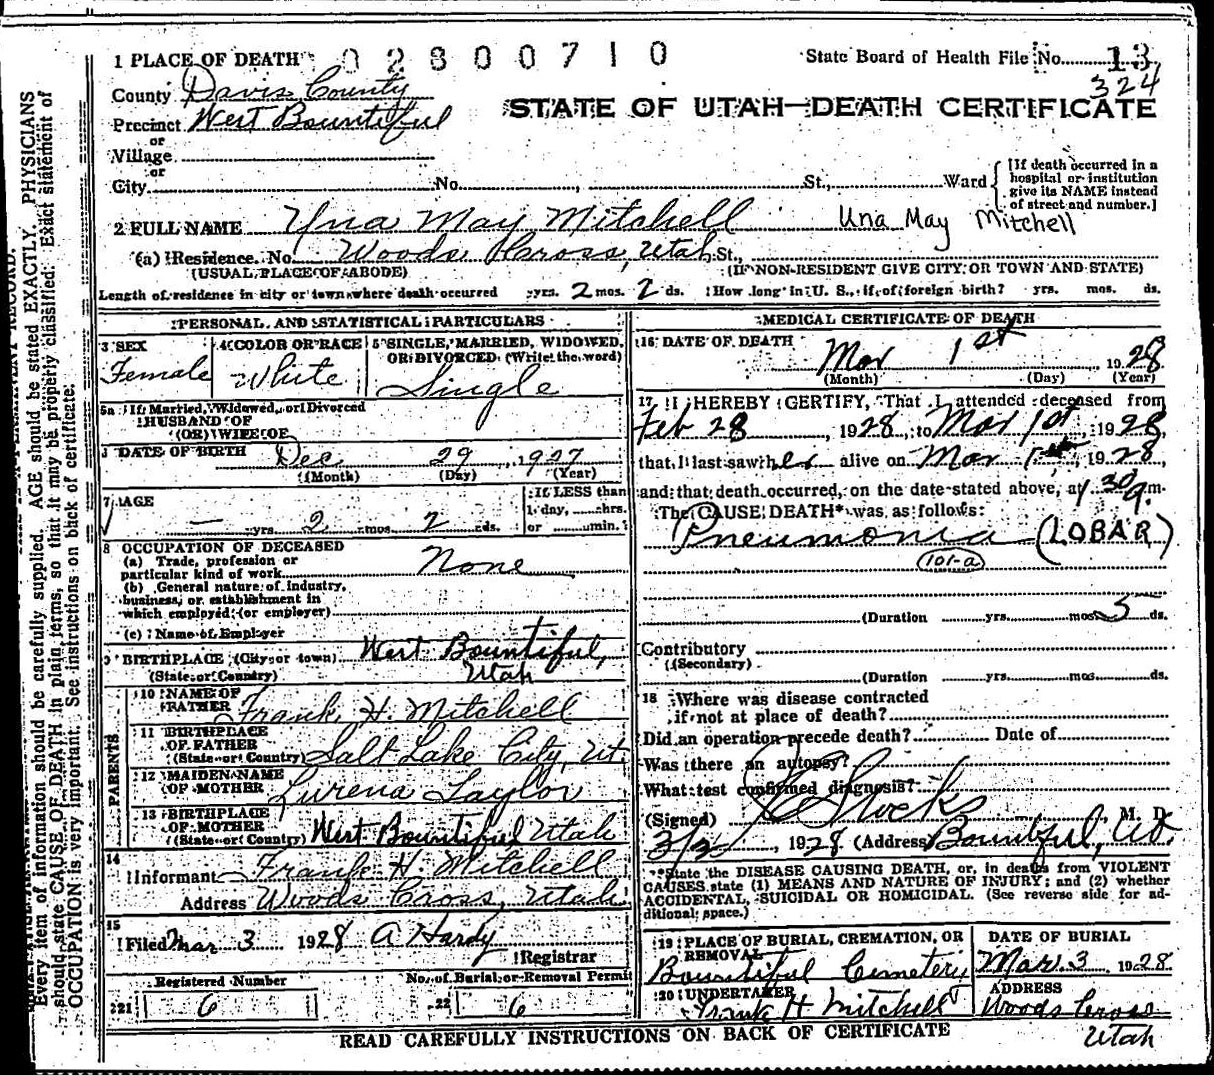 1 PLACE OF DEATH 02800710 State Board of Health File No. 13
324
County Davis County
STATE OF UTAH—DEATH CERTIFICATE
Precinct West Bountiful
or
Village
or
City No. , St., Ward
[If death occurred in a
hospital or institution
give its NAME instead
of street and number.]
2 FULL NAME Una May Mitchell Una May Mitchell
(a) Residence. No. Woods Cross, Utah St.,
(USUAL PLACE OF ABODE) (IF NON-RESIDENT GIVE CITY OR TOWN AND STATE)
Length of residence in city or town where death occurred yrs. 2 mos. 2 ds. How long in U. S., if of foreign birth? yrs. mos. ds.
PERSONAL AND STATISTICAL PARTICULARS
3 SEX 4 COLOR OR RACE 5 SINGLE, MARRIED, WIDOWED,
OR DIVORCED (Write the word)
Female White Single
5a If Married, Widowed, or Divorced
HUSBAND OF
(OR) WIFE OF
DATE OF BIRTH Dec 29, 1927
(Month) (Day) (Year)
7 AGE If LESS than
1 day, hrs.
— yrs. 2 mos. 2 ds. or min.
8 OCCUPATION OF DECEASED
(a) Trade, profession or
particular kind of work None
(b) General nature of industry,
business, or establishment in
which employed (or employer)
(c) Name of Employer
9 BIRTHPLACE (City or town) West Bountiful,
(State or Country) Utah
PARENTS
10 NAME OF
FATHER Frank H. Mitchell
11 BIRTHPLACE
OF FATHER
(State or Country) Salt Lake City, Ut.
12 MAIDEN NAME
OF MOTHER Lurena Taylor
13 BIRTHPLACE
OF MOTHER
(State or Country) West Bountiful Utah
14
Informant Frank H. Mitchell
Address Woods Cross, Utah.
15
Filed Mar. 3 1928 A Hardy
Registrar
Registered Number No. of Burial or Removal Permit
221 6 22 6
MEDICAL CERTIFICATE OF DEATH
16 DATE OF DEATH
Mar 1st, 1928
(Month) (Day) (Year)
17 I HEREBY CERTIFY, That I attended deceased from
Feb 28, 1928, to Mar 1st, 1928,
that I last saw her alive on Mar 1st, 1928,
and that death occurred, on the date stated above, at 1:30 a. m.
The CAUSE DEATH* was as follows:
Pneumonia (LOBAR)
101-a
(Duration yrs. mos. 5 ds.
Contributory
(Secondary)
(Duration yrs. mos. ds.
18 Where was disease contracted
if not at place of death?
Did an operation precede death? Date of
Was there an autopsy?
What test confirmed diagnosis?
(Signed) Stocks, M. D.
3/2, 1928 (Address Bountiful, Ut.
*State the DISEASE CAUSING DEATH, or, in deaths from VIOLENT
CAUSES state (1) MEANS AND NATURE OF INJURY; and (2) whether
ACCIDENTAL, SUICIDAL OR HOMICIDAL. (See reverse side for ad-
ditional space.)
19 PLACE OF BURIAL, CREMATION, OR
REMOVAL
Bountiful Cemetery
DATE OF BURIAL
Mar. 3 1928
20 UNDERTAKER
Frank H Mitchell
ADDRESS
Woods Cross
Utah
READ CAREFULLY INSTRUCTIONS ON BACK OF CERTIFICATE
Every item of information should be carefully supplied. AGE should be stated EXACTLY. PHYSICIANS
should state CAUSE OF DEATH in plain terms, so that it may be properly classified. Exact statement of
OCCUPATION is very important. See instructions on back of certificate.